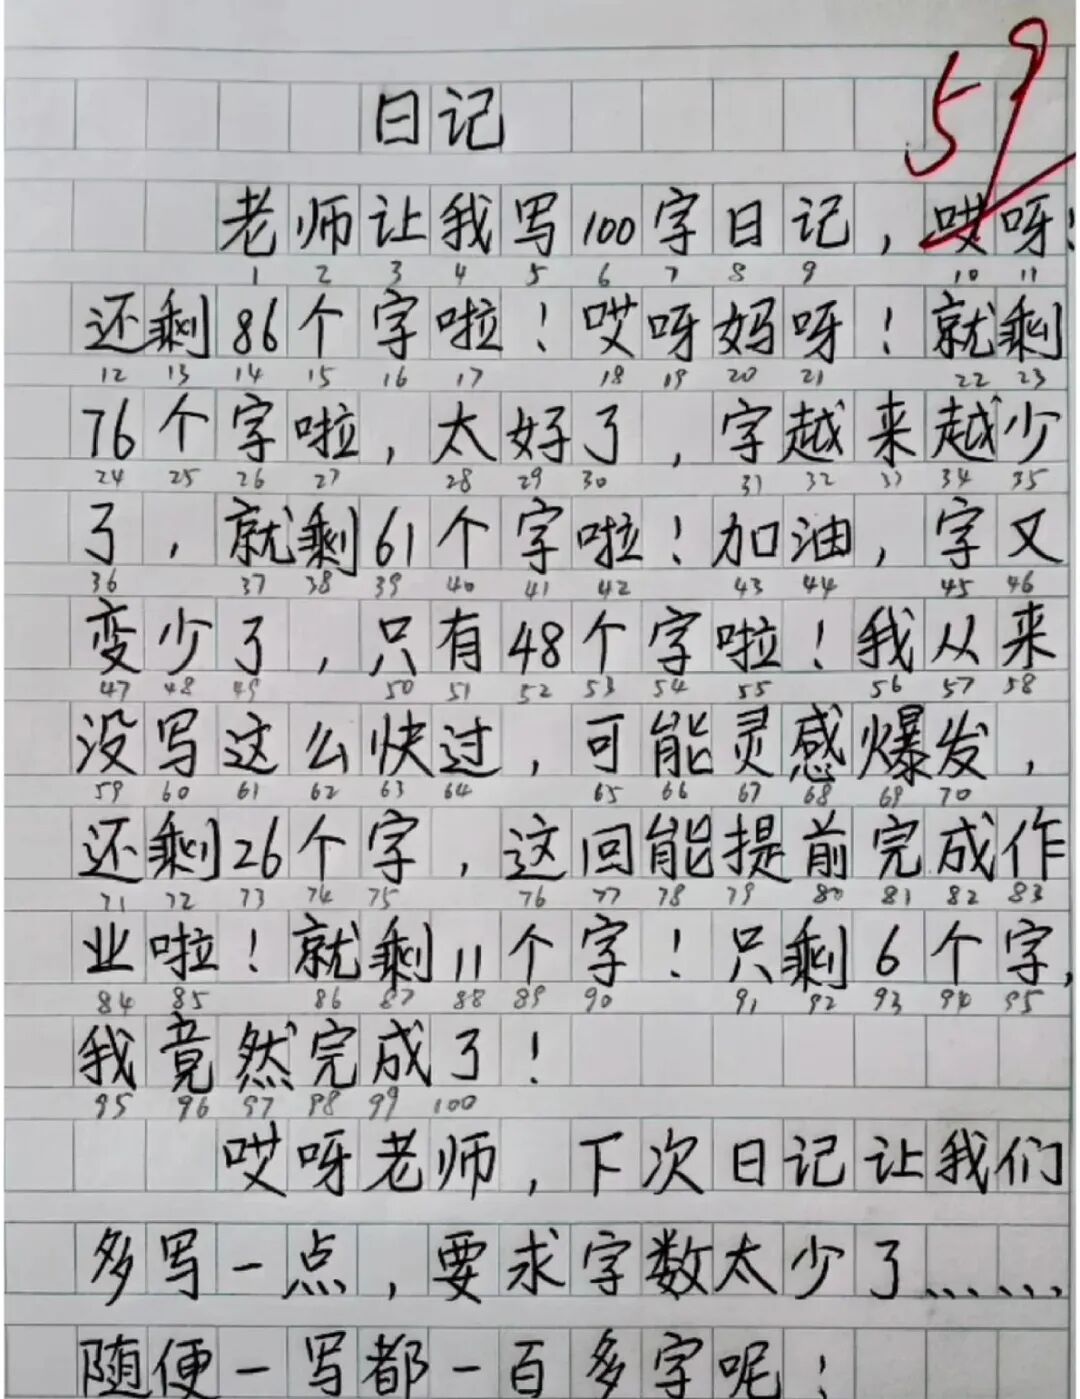 59
日记
老师让我写100字日记，哎呀！
1 2 3 4 5 6 7 8 9 10 11
还剩86个字啦！哎呀妈呀！就剩
12 13 14 15 16 17 18 19 20 21 22 23
76个字啦，太好了，字越来越少
24 25 26 27 28 29 30 31 32 33 34 35
了，就剩61个字啦！加油，字又
36 37 38 39 40 41 42 43 44 45 46
变少了，只有48个字啦！我从来
47 48 49 50 51 52 53 54 55 56 57 58
没写这么快过，可能灵感爆发，
59 60 61 62 63 64 65 66 67 68 69 70
还剩26个字，这回能提前完成作
71 72 73 74 75 76 77 78 79 80 81 82 83
业啦！就剩11个字！只剩6个字，
84 85 86 87 88 89 90 91 92 93 94 95
我竟然完成了！
95 96 97 98 99 100
哎呀老师，下次日记让我们
多写一点，要求字数太少了……
随便一写都一百多字呢！